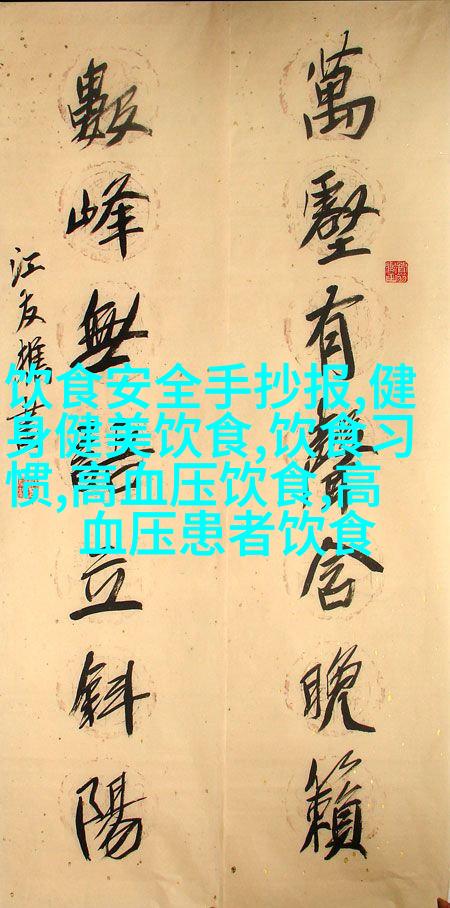 萬壑有聲含晚籟
數峰無語立斜陽
江友樵
饮食安全手抄报,健
身健美饮食,饮食习
惯,高血压饮食,高
血压患者饮食